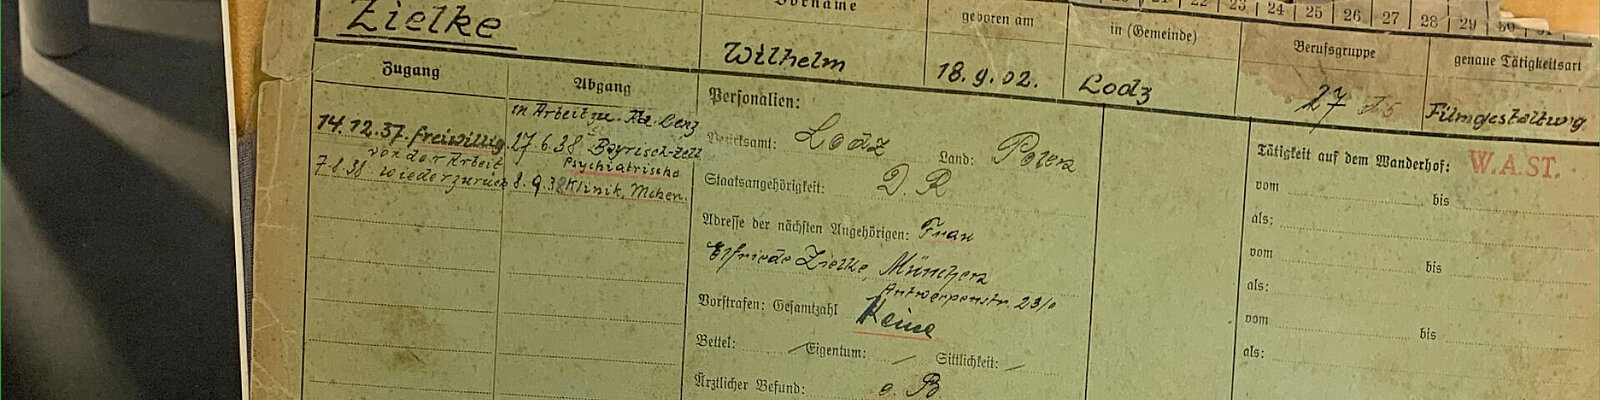 22 23 24 25 26 27 28 29 30 31
Zielke
Vorname
Wilhelm
geboren am
18.9.02.
in (Gemeinde)
Lodz
Berufsgruppe
27
genaue Tätigkeitsart
Filmgestaltung
Zugang
Abgang
14.12.37. freiwillig
von der Arbeit
7.8.38 wieder zurück
in Arbeit zu
17.6.38 Bayrisch-Zell
Psychiatrische
8.9.38 Klinik, Mchen.
Personalien:
Bezirksamt: Lodz Land: Polen
Staatsangehörigkeit: D. R.
Adresse der nächsten Angehörigen: Frau
Elfriede Zielke, München
Antwerpenstr. 23/0
Vorstrafen: Gesamtzahl Keine
Bettel: / Eigentum: / Sittlichkeit: /
Ärztlicher Befund: o. B.
Tätigkeit auf dem Wanderhof: W.A.ST.
vom bis
als:
vom bis
als:
vom bis
als: